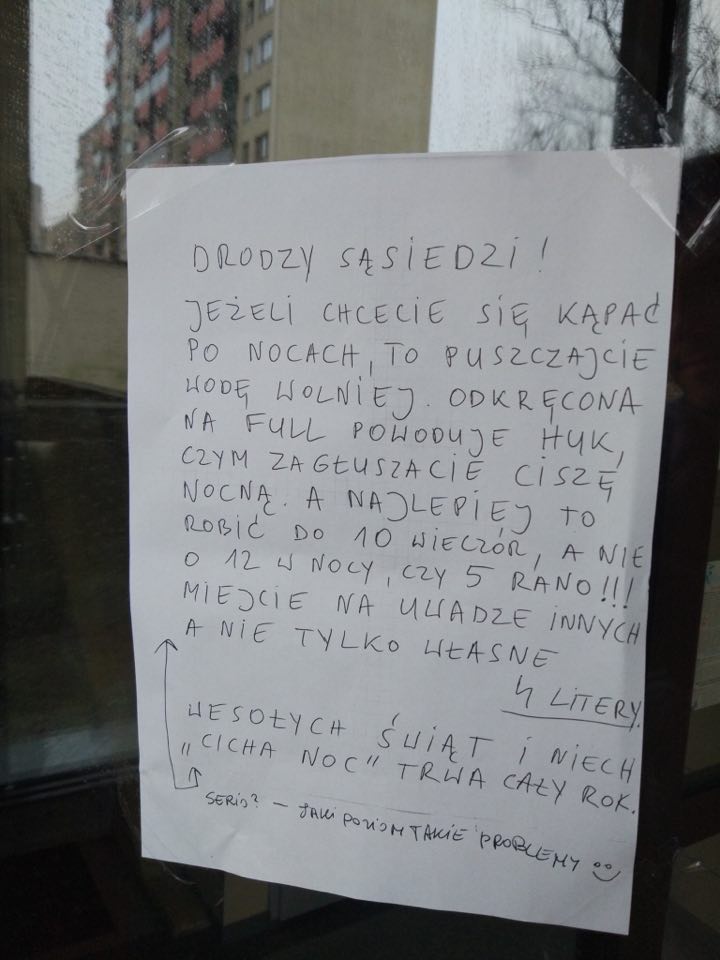 DRODZY SĄSIEDZI!
JEŻELI CHCECIE SIĘ KĄPAĆ
PO NOCACH, TO PUSZCZAJCIE
WODĘ WOLNIEJ. ODKRĘCONA
NA FULL POWODUJE HUK,
CZYM ZAGŁUSZACIE CISZĘ
NOCNĄ. A NAJLEPIEJ TO
ROBIĆ DO 10 WIECZÓR, A NIE
O 12 W NOCY, CZY 5 RANO!!!
MIEJCIE NA UWADZE INNYCH
A NIE TYLKO WŁASNE
4 LITERY.
WESOŁYCH ŚWIĄT I NIECH
„CICHA NOC" TRWA CAŁY ROK.
SERIO? – JAKI POZIOM TAKIE PROBLEMY